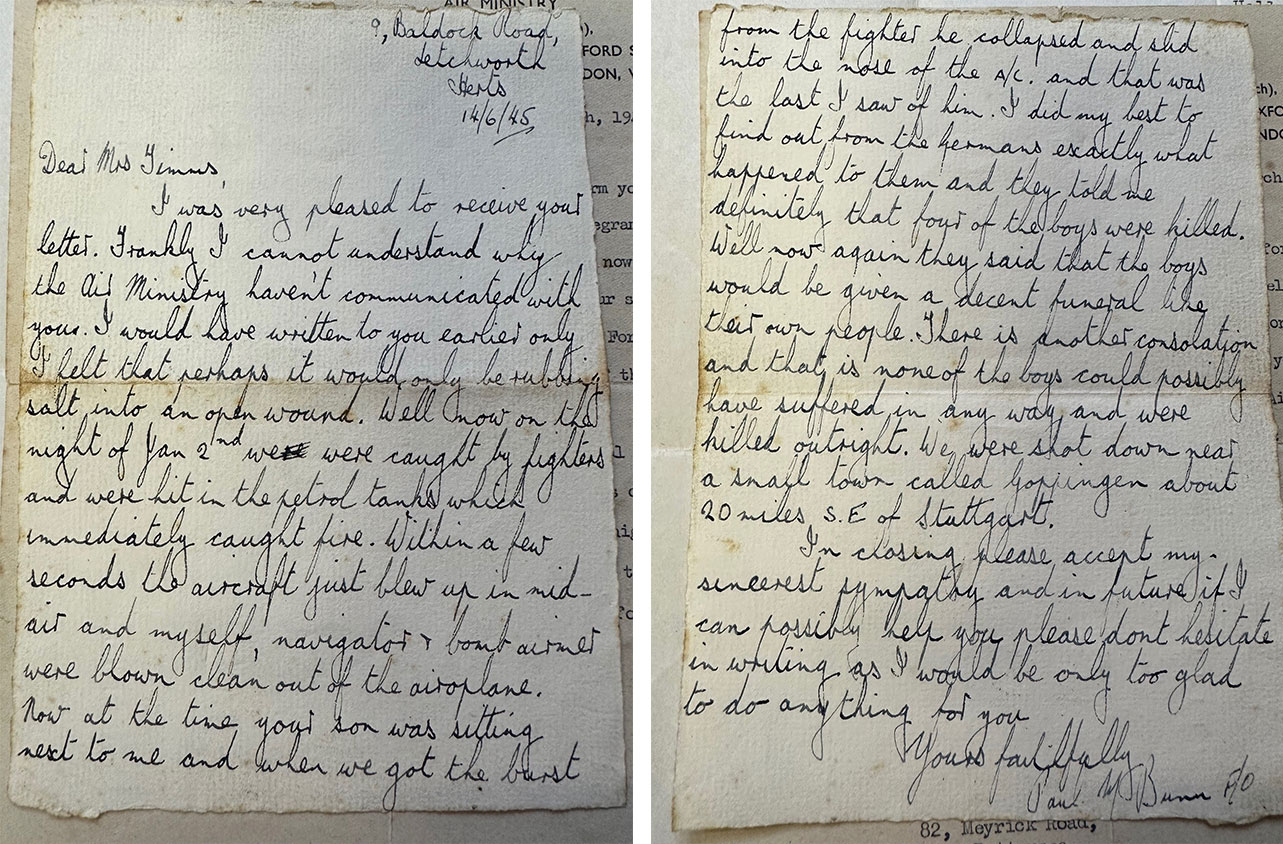 AIR MINISTRY
9, Baldock Road,
Letchworth
Herts
14/6/45
Dear Mrs Timms,
I was very pleased to receive your
letter. Frankly I cannot understand why
the Air Ministry haven't communicated with
you. I would have written to you earlier only
I felt that perhaps it would only be rubbing
salt into an open wound. Well now on the
night of Jan 2nd we were caught by fighters
and were hit in the petrol tanks which
immediately caught fire. Within a few
seconds the aircraft just blew up in mid-
air and myself, navigator & bomb airmer
were blown clean out of the airoplane.
Now at the time your son was sitting
next to me and when we got the burst
from the fighter he collapsed and slid
into the nose of the A/C. and that was
the last I saw of him. I did my best to
find out from the Germans exactly what
happened to them and they told me
definitely that four of the boys were killed.
Well now again they said that the boys
would be given a decent funeral like
their own people. There is another consolation
and that is none of the boys could possibly
have suffered in any way and were
killed outright. We were shot down near
a small town called Goppingen about
20 miles S.E of Stuttgart.
In closing please accept my
sincerest sympathy and in future if I
can possibly help you please dont hesitate
in writing as I would be only too glad
to do anything for you
Yours faithfully,
Paul Bunn F/O
82, Meyrick Road,